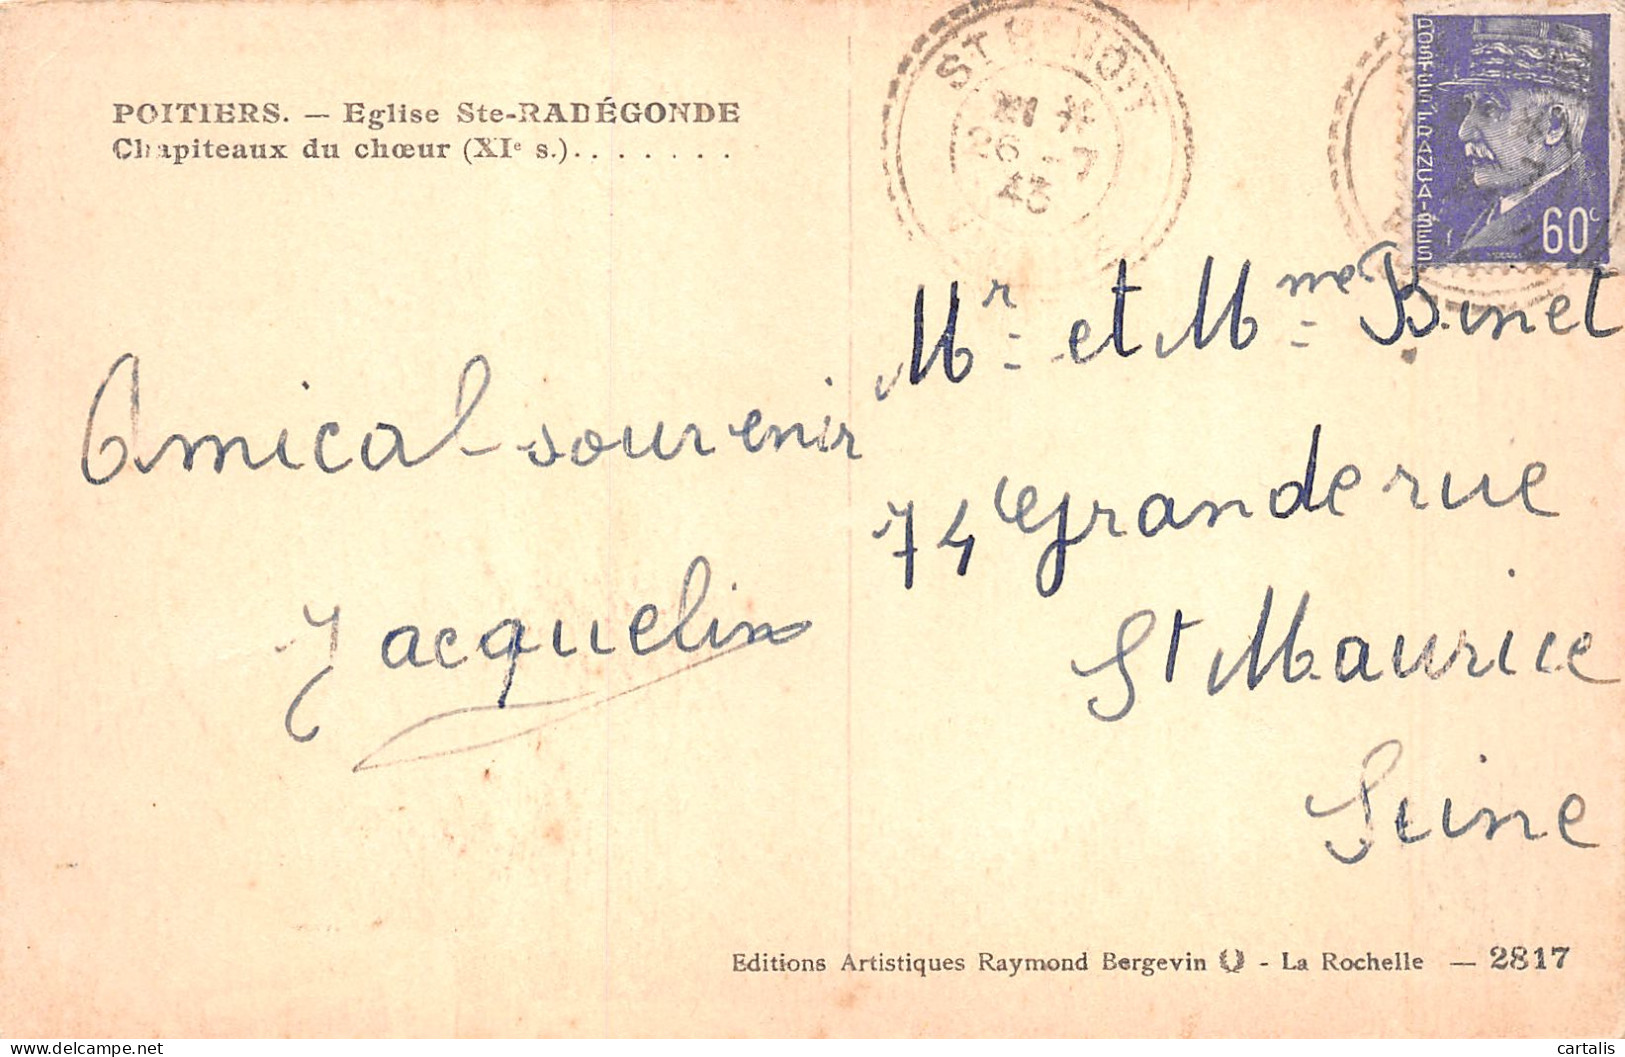 POITIERS. — Eglise Ste-RADÉGONDE
Chapiteaux du chœur (XIe s.). . . . . . .
ST BENOIT
26 - 7
43
POSTES FRANÇAISES
60c
Mr et Mme Binet
74 Grande rue
St Maurice
Seine
Amical souvenir
Jacqueline
Editions Artistiques Raymond Bergevin - La Rochelle — 2817
cartalis